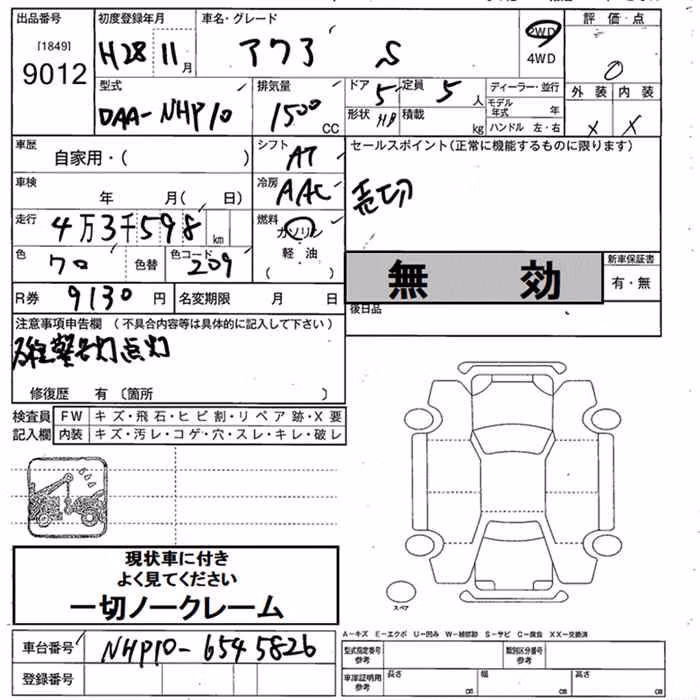 出品番号
[1849]
9012
初度登録年月
H28 11月
車名・グレード
アクア S
2WD
4WD
評価・点
0
外装 内装
X X
型式
DAA-NHP10
排気量
1500 CC
ドア 5
定員 5人
形状 HB
積載 kg
ディーラー・並行
モデル年式 年
ハンドル 左・右
車歴
自家用・( )
シフト AT
セールスポイント(正常に機能するものに限ります)
売切
車検
年 月( 日)
冷房 AAC
走行
4万3千598 km
燃料
ガソリン
軽油
( )
色
クロ
色替
色コード
209
無効
新車保証書
有・無
R券 9130円
名変期限 月 日
後日品
注意事項申告欄(不具合内容等は具体的に記入して下さい)
灯点灯
修復歴 有〔箇所 〕
検査員
記入欄
FW キズ・飛石・ヒビ割・リペア跡・X要
内装 キズ・汚レ・コゲ・穴・スレ・キレ・破レ
現状車に付き
よく見てください
一切ノークレーム
スペア
A-キズ E-エクボ U-凹み W-補修跡 S-サビ C-腐食 XX-交換済
車台番号 NHP10-6545826
登録番号
型式指定番号
参考
類別区分番号
参考
車庫証明用
参考
長さ cm
幅 cm
高さ cm